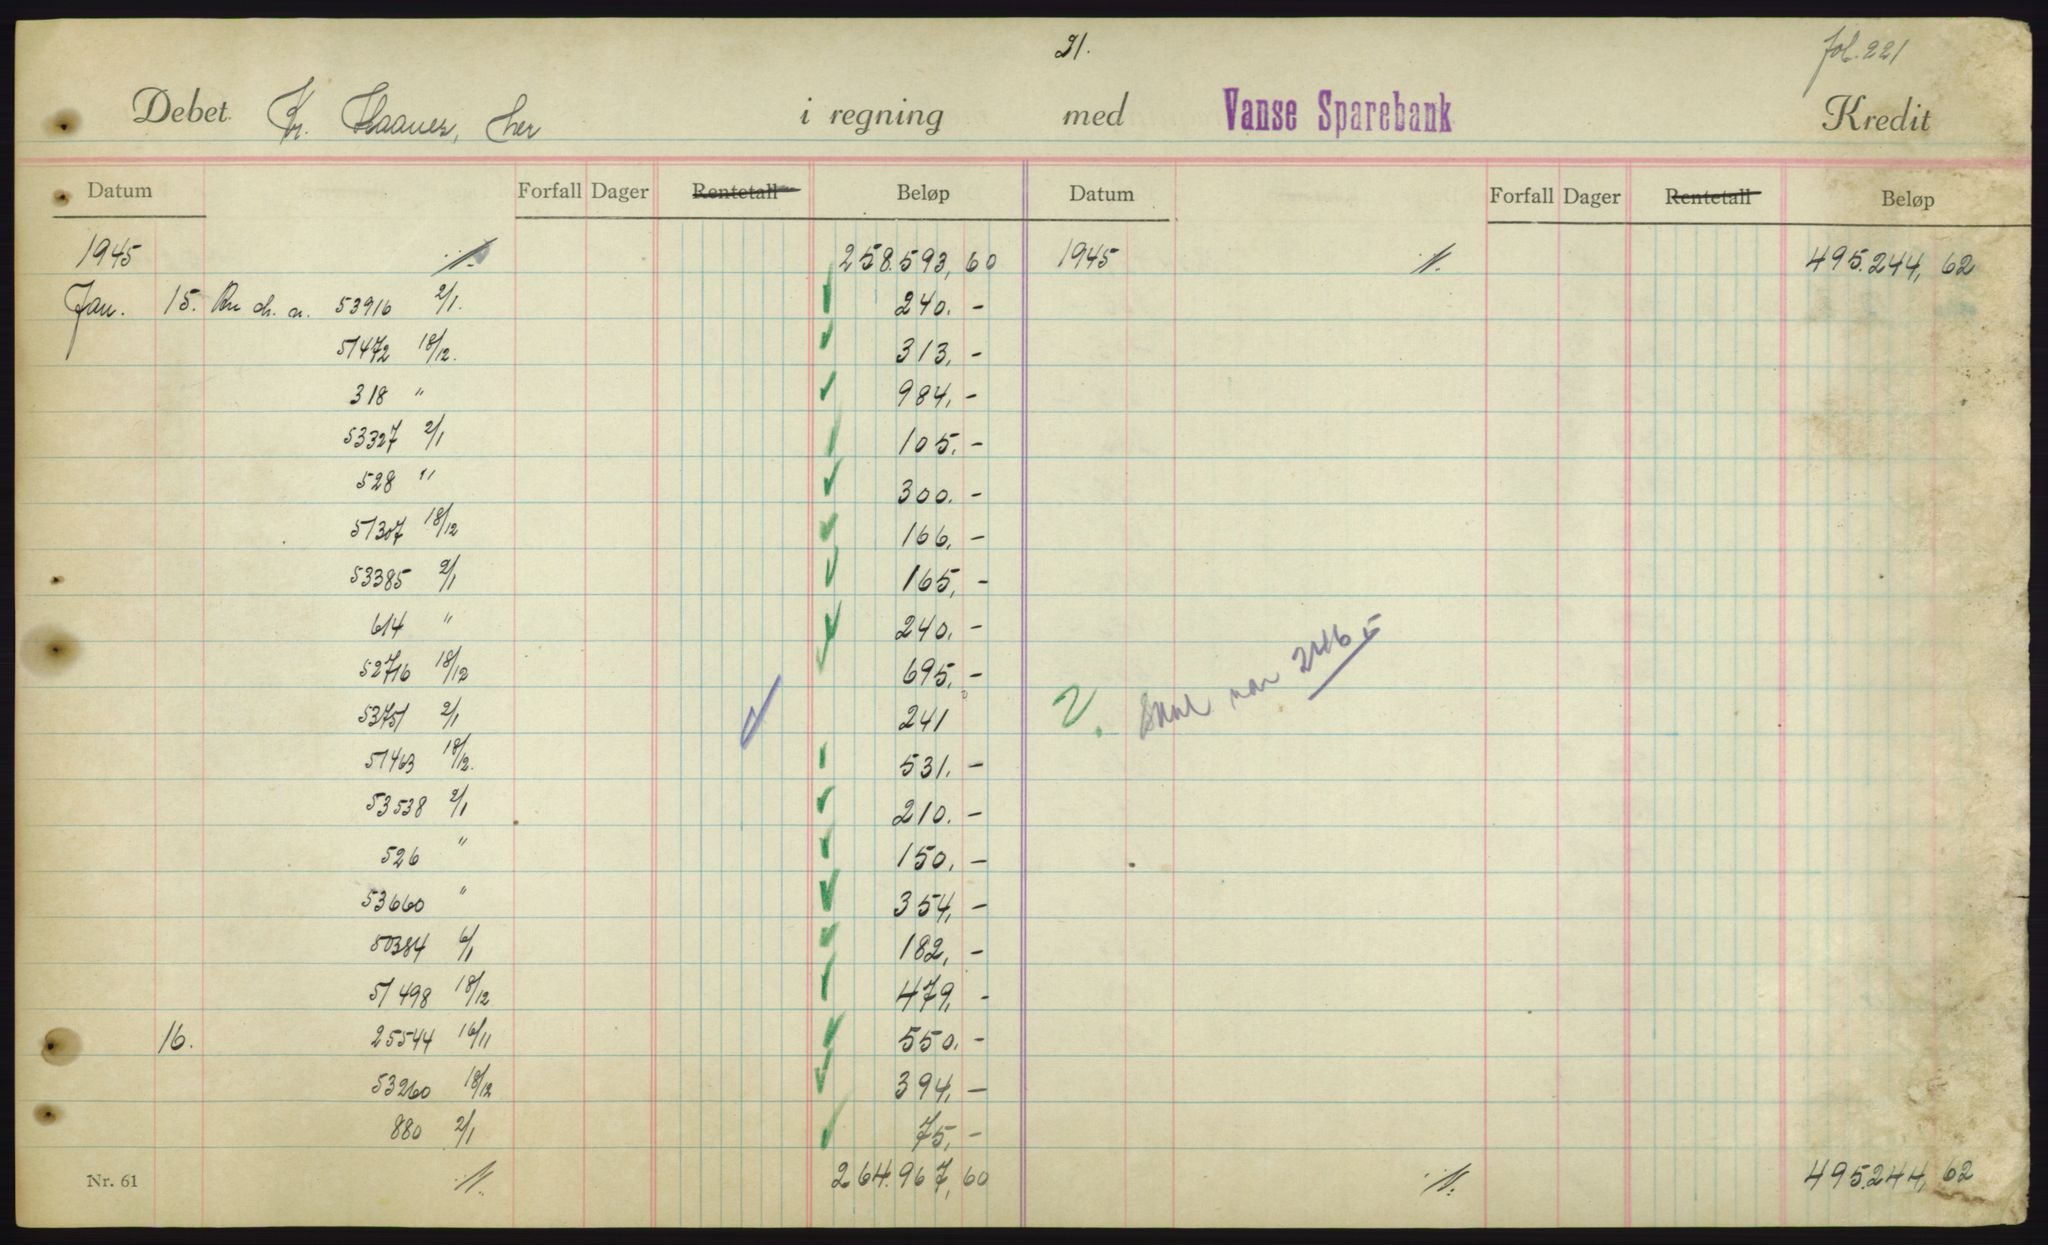 21.
fol. 221
Debet Kr. Haanes, her i regning med Vanse Sparebank Kredit
Datum Forfall Dager Rentetall Beløp Datum Forfall Dager Rentetall Beløp
1945 258.593,60 1945 495.244,62
Jan. 15. 53916 2/1. 240. -
51472 18/12. 313, -
318 " 984, -
53327 2/1 105. -
528 " 300. -
51307 18/12 166, -
53385 2/1 165, -
614 " 240. -
52716 18/12 695, -
53751 2/1 241
51463 18/12. 531. -
53538 2/1 210. -
526 " 150, -
53660 " 354, -
50384 6/1 182, -
51498 18/12 479, -
16. 25544 16/11 550. -
53260 18/12 394, -
880 2/1 75, -
Nr. 61 264.967,60 495.244,62